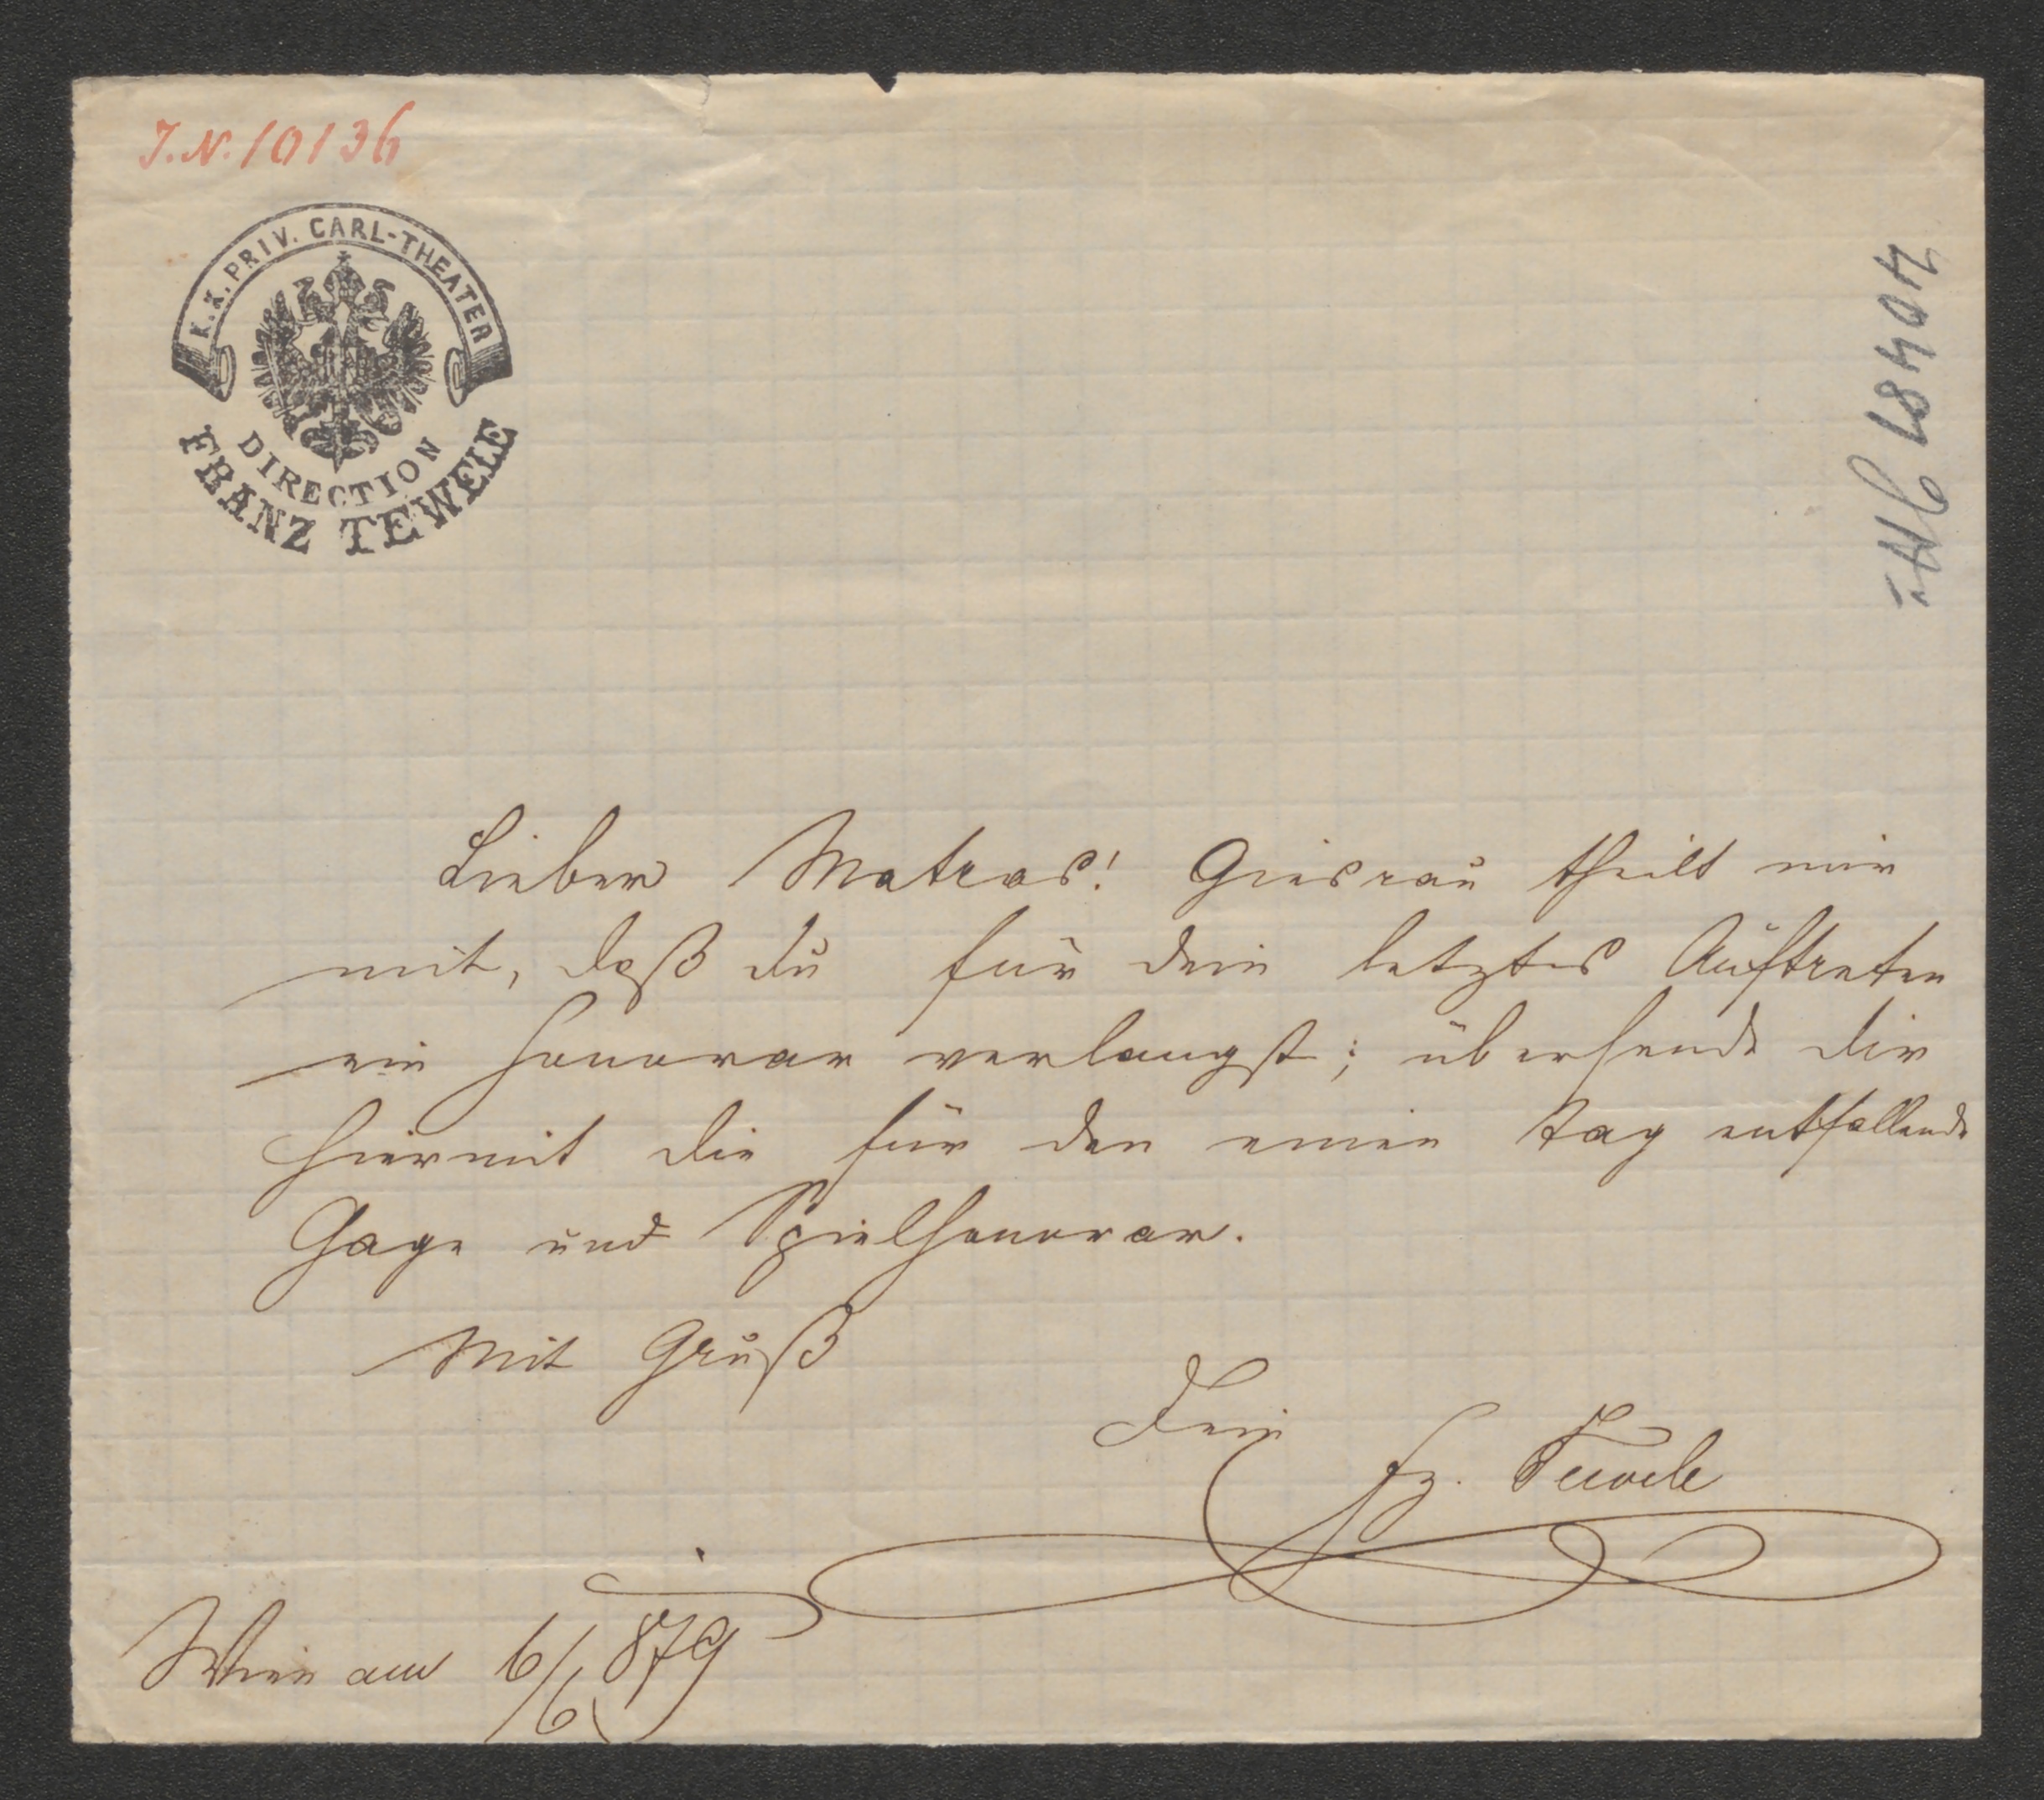 J.N. 10136
K.K. PRIV. CARL-THEATER
DIRECTION
FRANZ TEWELE
Lieber Matras! Giesrau theilt mir
mit, daß du für dein letztes Auftreten
ein Honorar verlangst; übersende dir
hiermit die für den einen Tag entfallende
Gage und Spielhonorar.
Mit Gruß
Dein
Fz. Tewele
Wien am 6/6 879